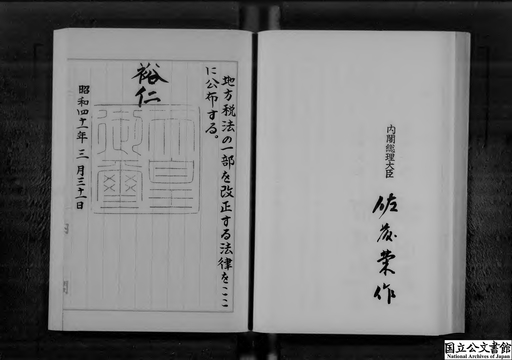 内閣総理大臣
佐藤榮作
地方税法の一部を改正する法律をここ
に公布する。
裕仁
天皇
御璽
昭和四十一年三月三十一日
国立公文書館
National Archives of Japan